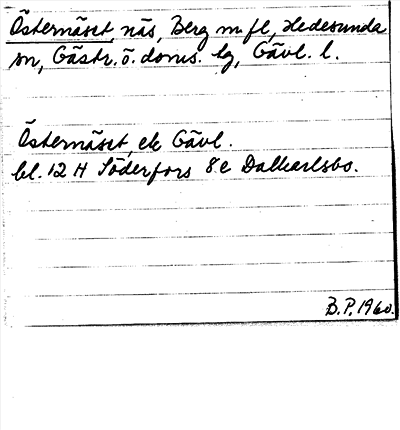 Östernäset, näs, Berg m fl, Hedesunda
sn, Gästr. ö. doms. lg, Gävl. l.
Östernäset, ek Gävl.
bl. 12 H Söderfors 8 e Dalkarlsbo.
B.P. 1960.